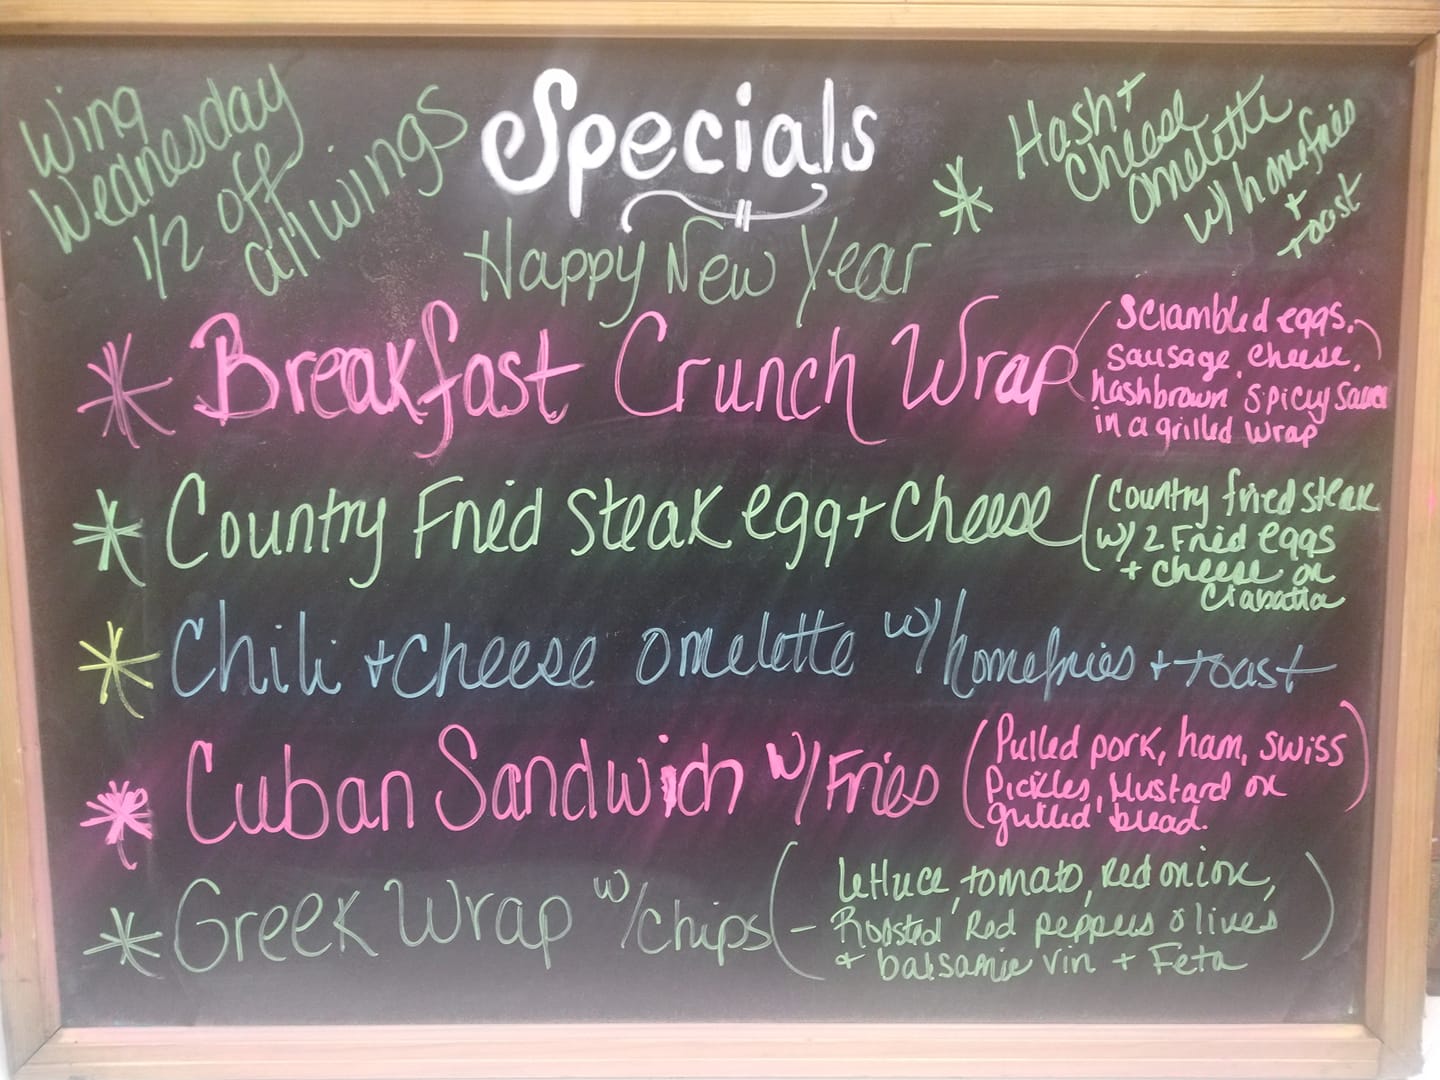 Wing
Wednesday
1/2 off
all wings
Specials
Happy New Year
* Hash +
cheese
omelette
w/ homefries
+
toast
* Breakfast Crunch Wrap
(Scrambled eggs,
sausage, cheese,
hashbrown spicy sauce
in a grilled wrap)
* Country Fried Steak egg + Cheese
(Country fried steak
w/ 2 Fried eggs
+ cheese on
Ciabatta
* Chili + Cheese omelette w/ homefries + toast
* Cuban Sandwich w/ Fries
(Pulled pork, ham, swiss
Pickles, Mustard on
grilled bread.)
* Greek Wrap w/ chips
(- lettuce, tomato, Red onion,
Roasted Red peppers olives
+ balsamic vin + Feta)